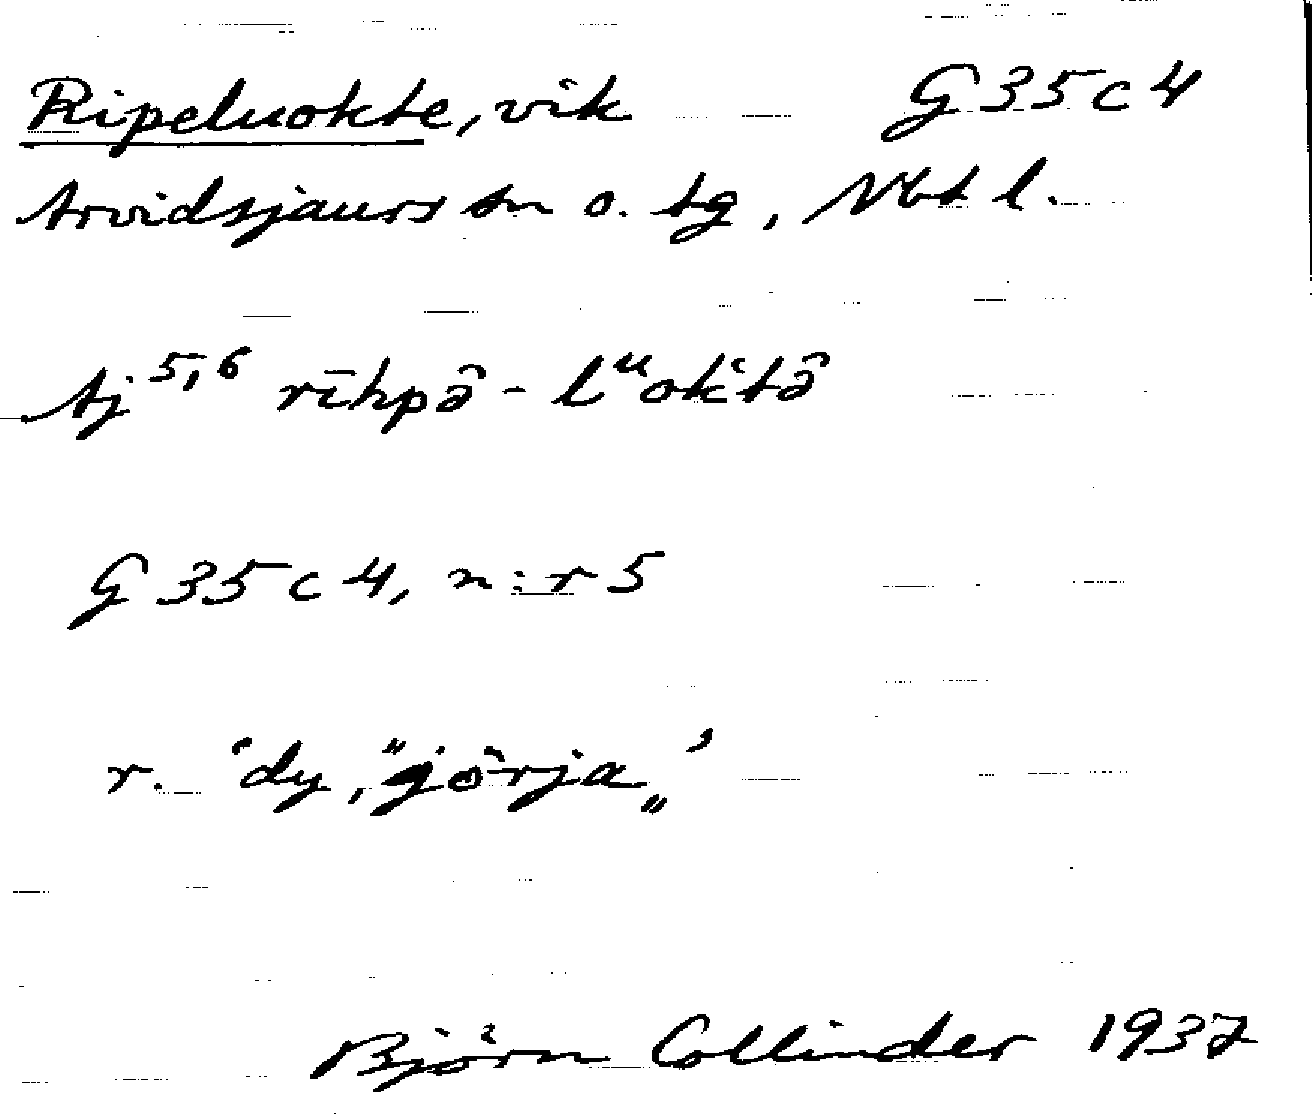 Ripeluokte, vik G35c4
Arvidsjaurs sn o. tg, Nbt l.
Aj 5,6 rīhpâ - lᵘok'tâ
G35c4, n:r 5
r. ‘dy, "görja„’
Björn Collinder 1937